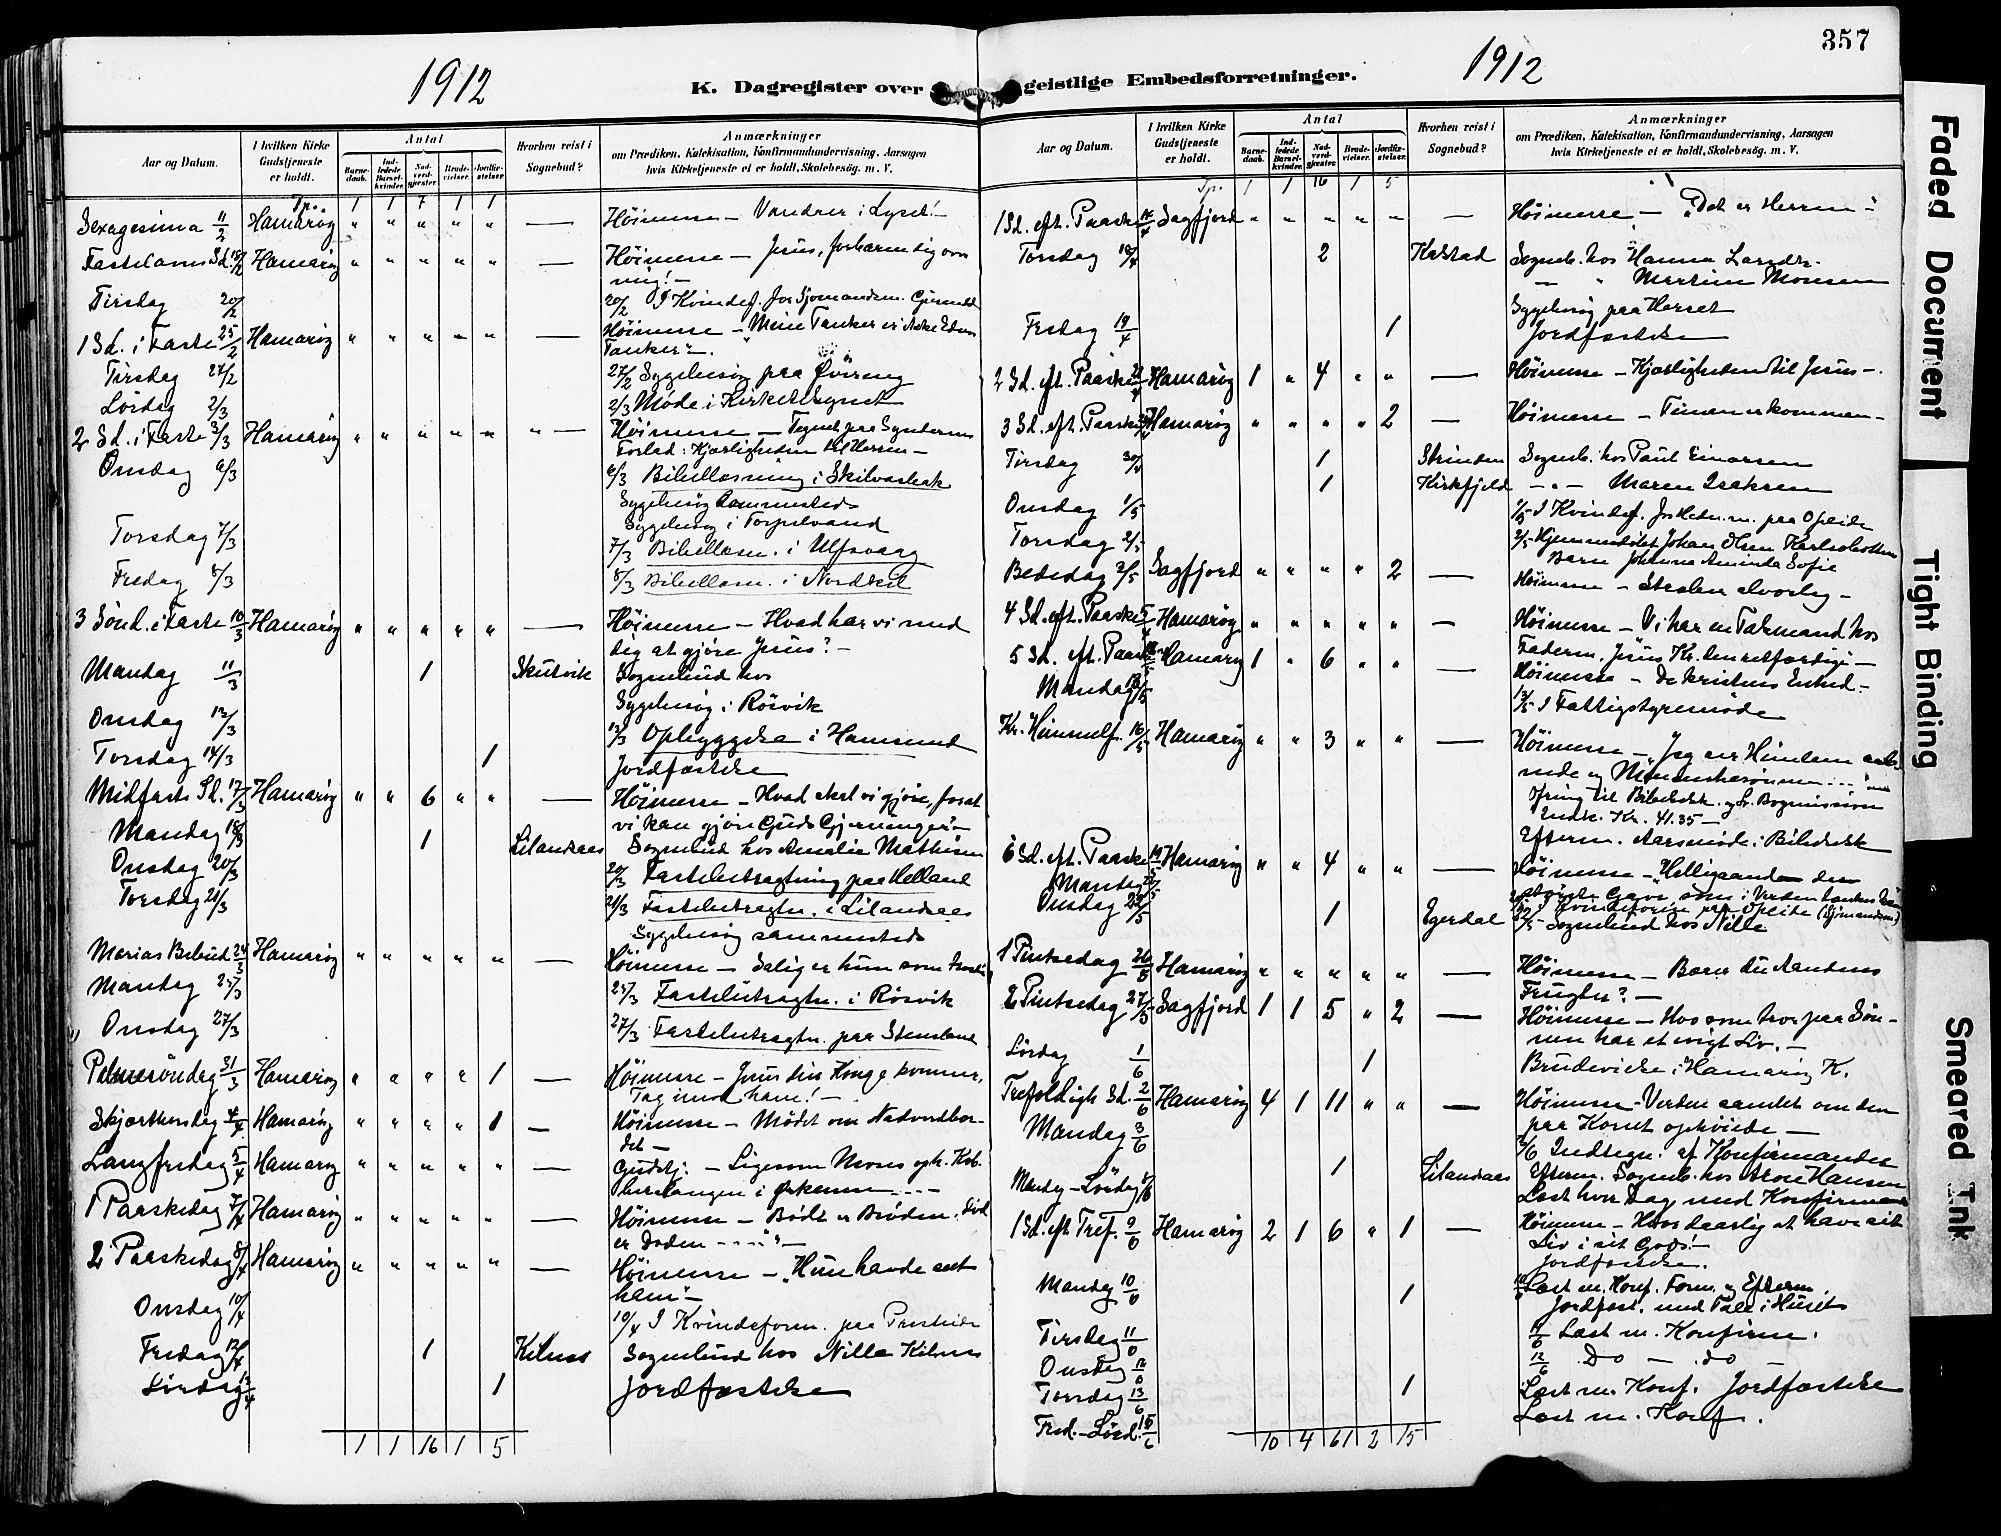 357
1912
K. Dagregister over geistlige Embedsforretninger.
1912
Aar og Datum.
I hvilken Kirke Gudstjeneste er holdt.
Antal
Barnedaab.
Indledede Barselkvinder.
Nadverdgjester.
Brudevielser.
Jordfæstelser.
Hvorhen reist i Sognebud?
Anmærkninger
om Prædiken, Katekisation, Konfirmandundervisning, Aarsagen
hvis Kirketjeneste ei er holdt, Skolebesøg. m. V.
Tp. 1 1 7 1 1
Sexagesima 11/2 Hamarøy " " " " " — Høimesse – Vandrer i Lyset! –
Fastelavns Sd. 18/2 Hamarøy " " " " " — Høimesse – Jesus, forbarm dig over
mig! –
Tirsdag 20/2 20/2 I Kvindef. for Sjømandsm.
1 Sd. i Faste 25/2 Hamarøy " " " " " Høimesse – Mine Tanker er ikke Eders
Tanker" –
Tirsdag 27/2 27/2 Sygebesøg paa
Lørdag 2/3 2/3 Møde i Kirketilsynet
2 Sd. i Faste 3/3 Hamarøy " " " " " " — Høimesse – Tegnet paa Syndernes
Forlad: Kjærligheden til Herren –
Onsdag 6/3 6/3 Bibellæsning i Skilvasbak
Sygebesøg sammesteds
Sygebesøg i
Torsdag 7/3 7/3 Bibellæsn. i Ulfsvaag
Fredag 8/3 8/3 Bibellæsn. i Nordskil
3 Sønd. i Faste 10/3 Hamarøy " " " " " — Høimesse – Hvad har vi med
dig at gjøre Jesus? –
Mandag 11/3 1 Skutvik Sognebud hos
Sygebesøg i Røsvik
Onsdag 13/3 13/3 Opbyggelse i Hamsund
Torsdag 14/3 1 Jordfæstelse
Midfaste Sd. 17/3 Hamarøy " " 6 " " — Høimesse – Hvad skal vi gjøre, forat
vi kan gjøre Guds Gjerninger" –
Mandag 18/3 1 Lilandsaas Sognebud hos Amalie Mathisen
Onsdag 20/3 20/3 Fastebetragtning paa Helland
Torsdag 21/3 21/3 Fastebetragtn. i Lilandsaas
Sygebesøg sammesteds
Marias Bebud. 24/3 Hamarøy " " " " " — Høimesse – Salig er hun som
Mandag 25/3 25/3 Fastebetragtn. i Røsvik
Onsdag 27/3 27/3 Fastebetragtn. paa Stensland
Palmesøndag 31/3 Hamarøy " " " " 1 — Høimesse – Jesus din Konge kommer,
Tag imod ham! –
Skjærthorsdag 4/4 Hamarøy " " " " 1 — Høimesse – Mødet om Nadverdbor-
det –
Langfredag 5/4 Hamarøy " " " " " — Gudstj. – Ligesom Moses oph. Kob-
berslangen i Ørkenen - - - –
1 Paaskedag 7/4 Hamarøy " " " " " — Høimesse – Død er Brøden,
er Døden - - - -
2 Paaskedag 8/4 Hamarøy " " " " " — Høimesse – "Hun havde set
ham" –
Onsdag 10/4 10/4 I Kvindeforen. paa Presteide
Fredag 12/4 1 Kilnes Sognebud hos Nille Kilnes
Lørdag 13/4 1 Jordfæstelse
1 1 16 1 5
Aar og Datum.
I hvilken Kirke Gudstjeneste er holdt.
Antal
Barnedaab.
Indledede Barselkvinder.
Nadverdgjester.
Brudevielser.
Jordfæstelser.
Hvorhen reist i Sognebud?
Anmærkninger
om Prædiken, Katekisation, Konfirmandundervisning, Aarsagen
hvis Kirketjeneste ei er holdt, Skolebesøg. m. V.
Tp. 1 1 16 1 5
1 Sd. eft. Paaske 14/4 Sagfjord " " " " " — Høimesse – "Det er Herren –"
Torsdag 18/4 2 Kalstad Sogneb. hos Hanna Larsdr.
— " Martine Monsen
Sygebesøg paa
Fredag 19/4 1 Jordfæstelse
2 Sd. eft. Paaske 21/4 Hamarøy 1 " 4 " " — Høimesse – Kjærligheden til Jesus –
3 Sd. eft. Paaske 28/4 Hamarøy " " " " 2 — Høimesse – Timen er kommen –
Tirsdag 30/4 1 Strinden Sogneb. hos Paul Einarsen
1 Kirkfjeld – " – Maren Isaksen
Onsdag 1/5 1/5 I Kvindef. for Hedn.m. paa Opeide
Torsdag 2/5 2/5 Hjemmedøbt Johan Olsen Karlsbotten
Barn Johanna Aminda Sofie
Bededag 3/5 Sagfjord " " " " 2 — Høimesse – alvorlig –
4 Sd. eft. Paaske 5/5 Hamarøy " " " " " — Høimesse – Vi har en Talsmand hos
Faderen, Jesus Kr. den retfærdige –
5 Sd. eft. Paaske 12/5 Hamarøy 1 " 6 " " — Høimesse – De kristnes Enhed –
Mandag 13/5 13/5 I Fattigstyremøde
Kr. Himmelf. 16/5 Hamarøy " " 3 " " — Høimesse – "Jeg ser Himlen aab-
nede og Menneskesønnen - - -"
Ofring til Bibelselsk. og
Indk. Kr. 41.35 –
Efterm. Aarsmøde i Bibelselsk
6 Sd. eft. Paaske 19/5 Hamarøy " " 4 " " — Høimesse – "Helligaanden den
største Gave, som i Verden
Mandag
Onsdag 22/5 1 Egerdal 22/5 Sognebud hos Nille
1 Pintsedag 26/5 Hamarøy " " " " " — Høimesse – Bærer du Aandens
Frugter? –
2 Pintsedag 27/5 Sagfjord 1 1 5 " 2 — Høimesse – Hver som tror paa Søn-
nen har et evigt Liv. –
Lørdag 1/6 1 Brudevielse i Hamarøy K.
Trefoldigh. Sd. 2/6 Hamarøy 4 1 11 " " — Høimesse – Verden samlet om den
paa Korset ophøiede –
Mandag 3/6 3/6 Indtegn. af Konfirmander
1 Lilandsaas Efterm. Sogneb. hos Arne Hansen
Mandag – Lørdag 8/6 Læst hver Dag med Konfirmand
1 Sd. eft. Tref. 9/6 Hamarøy 2 1 6 " 1 — Høimesse – Hvor daarlig at have sit
Liv i sit Gods! –
Jordfæstelse.
Mandag 10/6 1 10/6 Læst m. Konf. Form. og Efterm.
Jordfæst. med Tale i Huset
Tirsdag 11/6 11/6 Læst m. Konfirm.
Onsdag 12/6 12/6 Do – do –
Torsdag 13/6 1 Læst m. Konf. Jordfæstelse
Fred. – Lørd. 15/6 Læst m. Konf.
10 4 61 2 15
Faded Document
Tight Binding
Smeared Ink